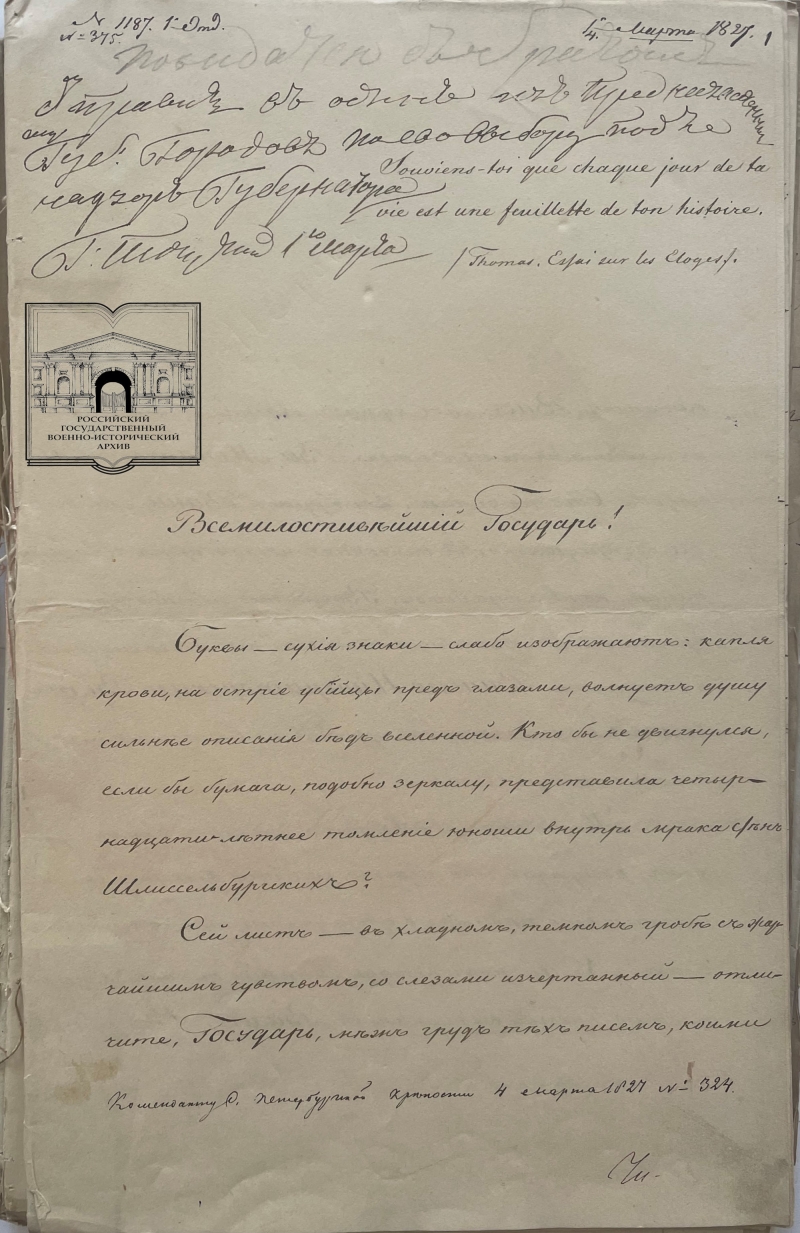 № 1187. 1е Отд.
№ 375.
4. Марта 1827. 1
повидаться съ братомъ
Отправить въ одинъ изъ Предназначенныхъ
Губ. Городовъ по его выбору подъ
надзоръ Губернатора
Souviens-toi que chaque jour de ta
vie est une feuillette de ton histoire.
1го Марта
/Thomas. Essai sur les Eloges/.
РОССИЙСКИЙ
ГОСУДАРСТВЕННЫЙ
ВОЕННО-ИСТОРИЧЕСКИЙ
АРХИВ
Всемилостивѣйшій Государь!
Буквы — сухія знаки — слабо изображаютъ: капля
крови, на остріе убійцы предъ глазами, волнуетъ душу
сильнѣе описанія бѣдъ вселенной. Кто бы не двигнулся,
если бы бумага, подобно зеркалу, представила четыр-
надцати-лѣтнее томленіе юноши внутрь мрака стѣнъ
Шлиссельбургскихъ?
Сей листъ — въ хладномъ, темномъ гробѣ съ жар-
чайшимъ чувствомъ, со слезами изчертанный — отли-
чите, Государь, межъ грудъ тѣхъ писемъ, коими
Коменданту С. Петербургской крѣпости 4 марта 1827 № 324.